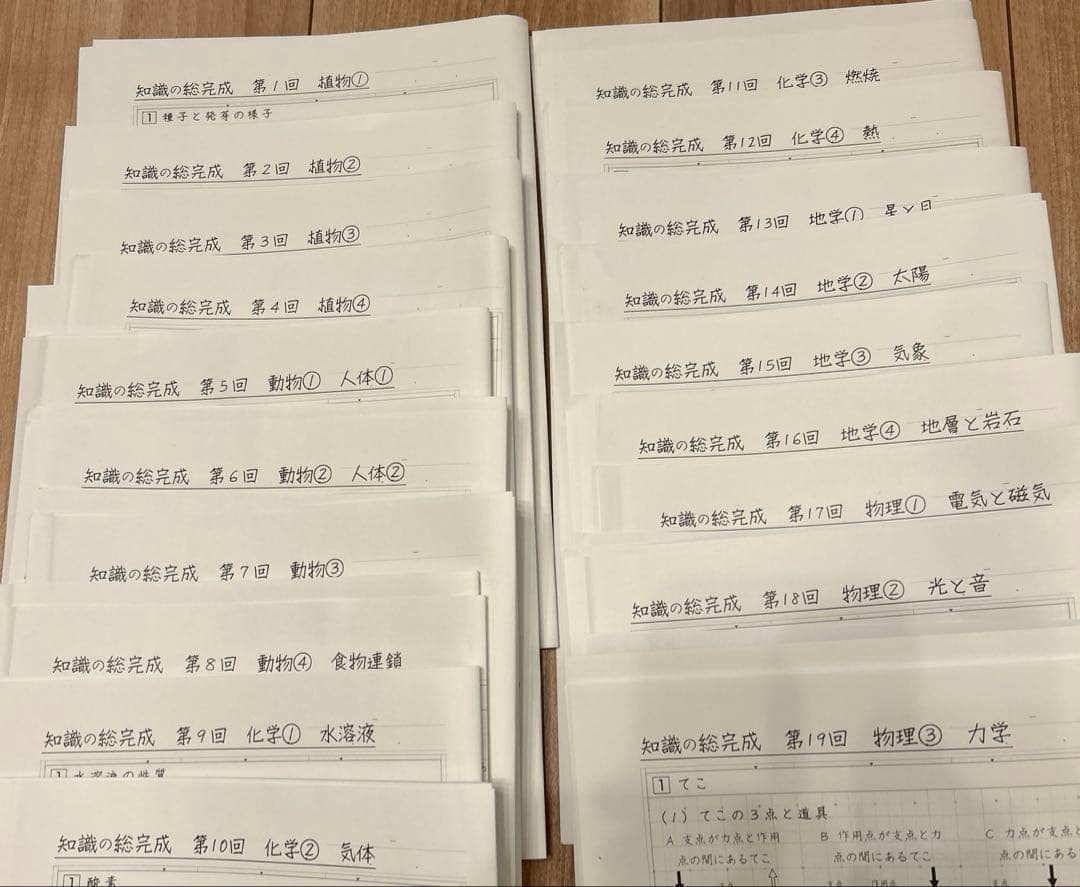 知識の総完成　第1回　植物①
1 種子と発芽の様子
知識の総完成　第2回　植物②
知識の総完成　第3回　植物③
知識の総完成　第4回　植物④
知識の総完成　第5回　動物①　人体①
知識の総完成　第6回　動物②　人体②
知識の総完成　第7回　動物③
知識の総完成　第8回　動物④　食物連鎖
知識の総完成　第9回　化学①　水溶液
1 水溶液の性質
知識の総完成　第10回　化学②　気体
1 酸素
知識の総完成　第11回　化学③　燃焼
知識の総完成　第12回　化学④　熱
知識の総完成　第13回　地学①　星と月
知識の総完成　第14回　地学②　太陽
知識の総完成　第15回　地学③　気象
知識の総完成　第16回　地学④　地層と岩石
知識の総完成　第17回　物理①　電気と磁気
知識の総完成　第18回　物理②　光と音
知識の総完成　第19回　物理③　力学
1 てこ
(1) てこの3点と道具
A 支点が力点と作用　B 作用点が支点と力　C 力点が支点と
点の間にあるてこ　点の間にあるてこ　点の間にある